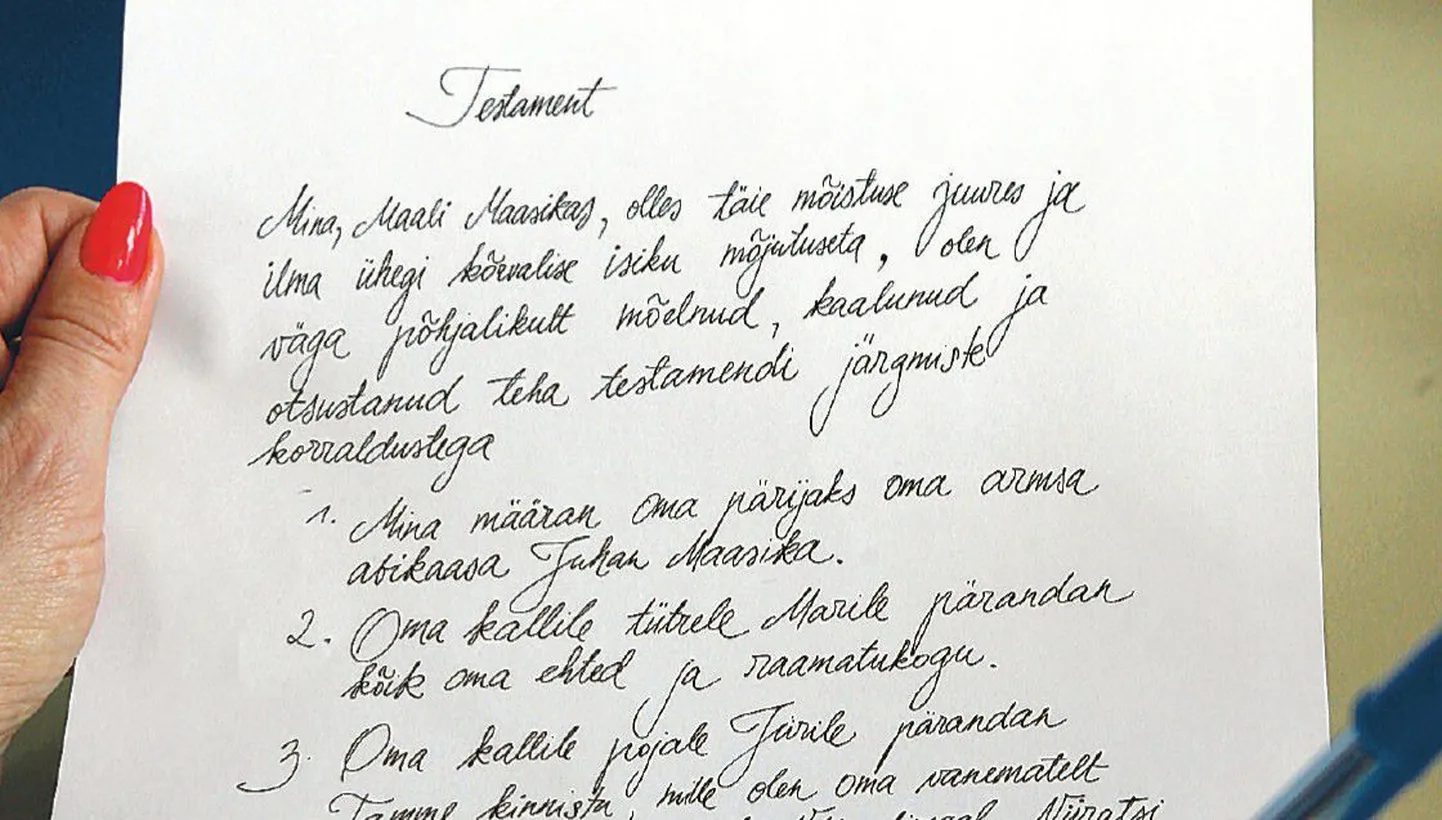 Testament
Mina, Maali Maasikas, olles täie mõistuse juures ja
ilma ühegi kõrvalise isiku mõjutuseta, olen
väga põhjalikult mõelnud, kaalunud ja
otsustanud teha testamendi järgmiste
korraldustega
1. Mina määran oma pärijaks oma armsa
abikaasa Juhan Maasika.
2. Oma kallile tütrele Marile pärandan
kõik oma ehted ja raamatukogu.
3. Oma kallile pojale Jürile pärandan
Tamme kinnistu, mille olen oma vanematelt
Niiratsi